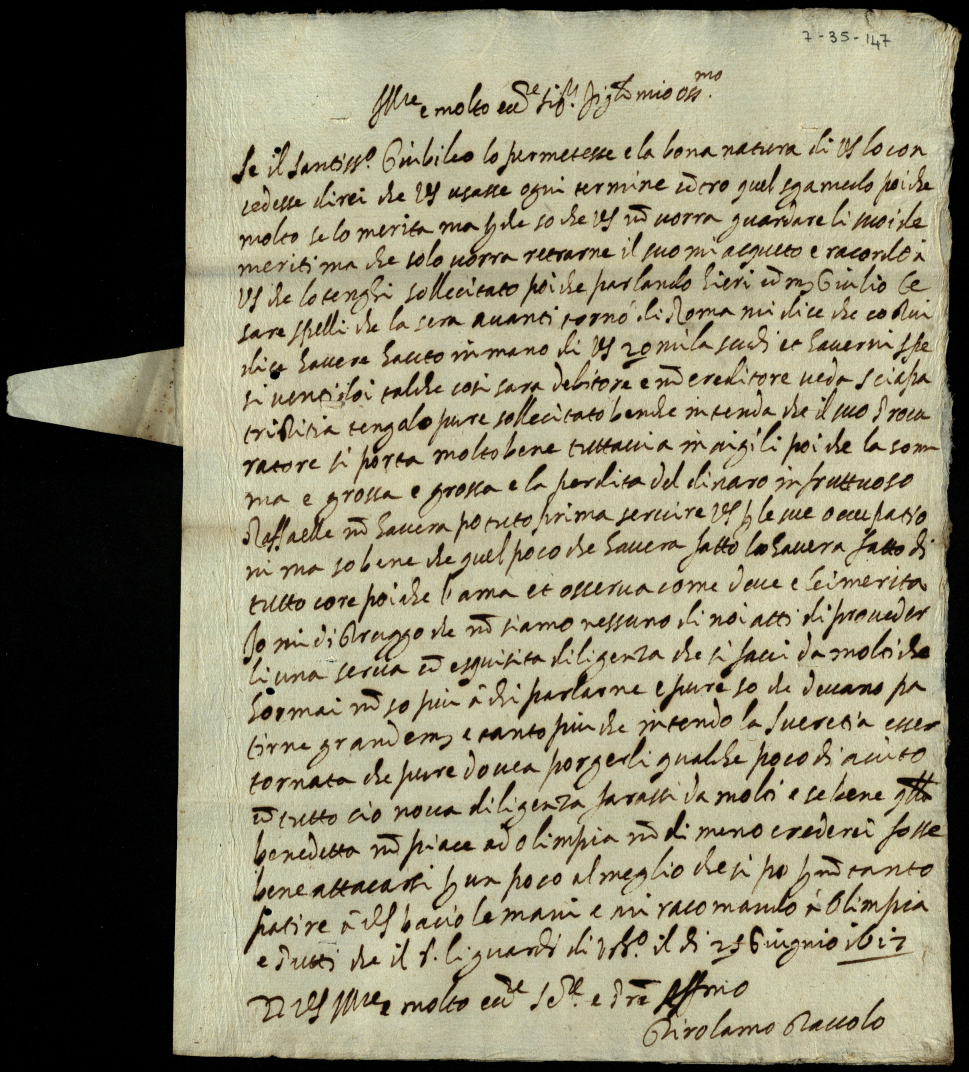 7-35-147
Ill.re e molto ecc.te Sig.r figl.o mio oss.mo
Se il santiss.o Giubileo lo permetesse e la bona natura di VS lo con
cedesse direi che VS usasse ogni termine cōtro quel sgarmelo poi che
molto se lo merita ma perche so che VS nō vorra guardare li suoi de
meriti ma che solo vorra retrarne il suo mi acqueto e racordo à
VS che lo tenghi sollecitato poi che parlando hieri cō m. Giulio Ce
sare che la sera avanti tornò di Roma mi dice che costui
dice havere havuto in mano di VS 20 mila scudi et havern spe
si ventidoi talche cosi sara debitore e nō creditore veda
tristitia tengalo pure sollecitato benche intenda che il suo Procu
ratore si porta molto bene tuttavia invigili poi che la som
ma e grossa e grossa e la perdita del dinaro infruttuoso
Raffaelle nō havera potuto prima servire VS p le sue occupatio
ni ma so bene che quel poco che havera fatto lo havera fatto di
tutto core poi che l'ama et osserva come deve e lei merita
Io mi distruggo che nō siamo nessuno di noi atti di proveder
li una serva cō esquisita diligenza che si facci da molti che
hormai nō so piu à chi parlarne e pure so che devano pa
tirne grandem. e tanto piu che intendo la Lucretia esser
tornata che pure dovea porgerli qualche poco di aiuto
cō tutto cio nova diligenza farassi da molti e se bene q.lla
benedetta nō piace ad Olimpia nō di meno crederei fosse
bene attacarsi p un poco al meglio che si po p nō tanto
patire à VS bacio le mani e mi racomando à Olimpia
e Tutti che il S. li guardi di il di 25 Giugnio 1617
Di VS Ill.re e molto ecc.te Se.re e Pre aff.mo
Girolamo